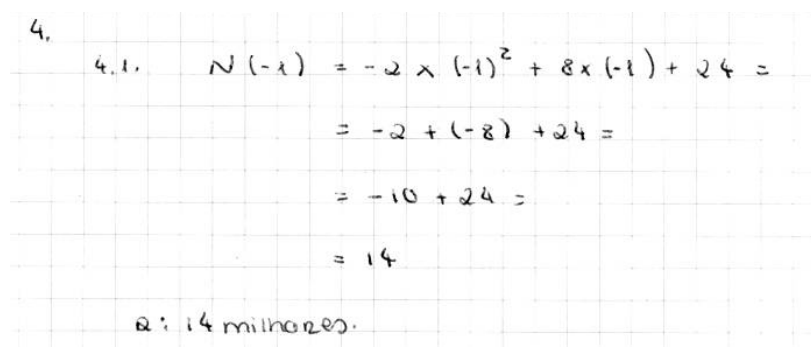 4.
4.1. N(-1) = -2 × (-1)² + 8 × (-1) + 24 =
= -2 + (-8) + 24 =
= -10 + 24 =
= 14
R: 14 milhares.